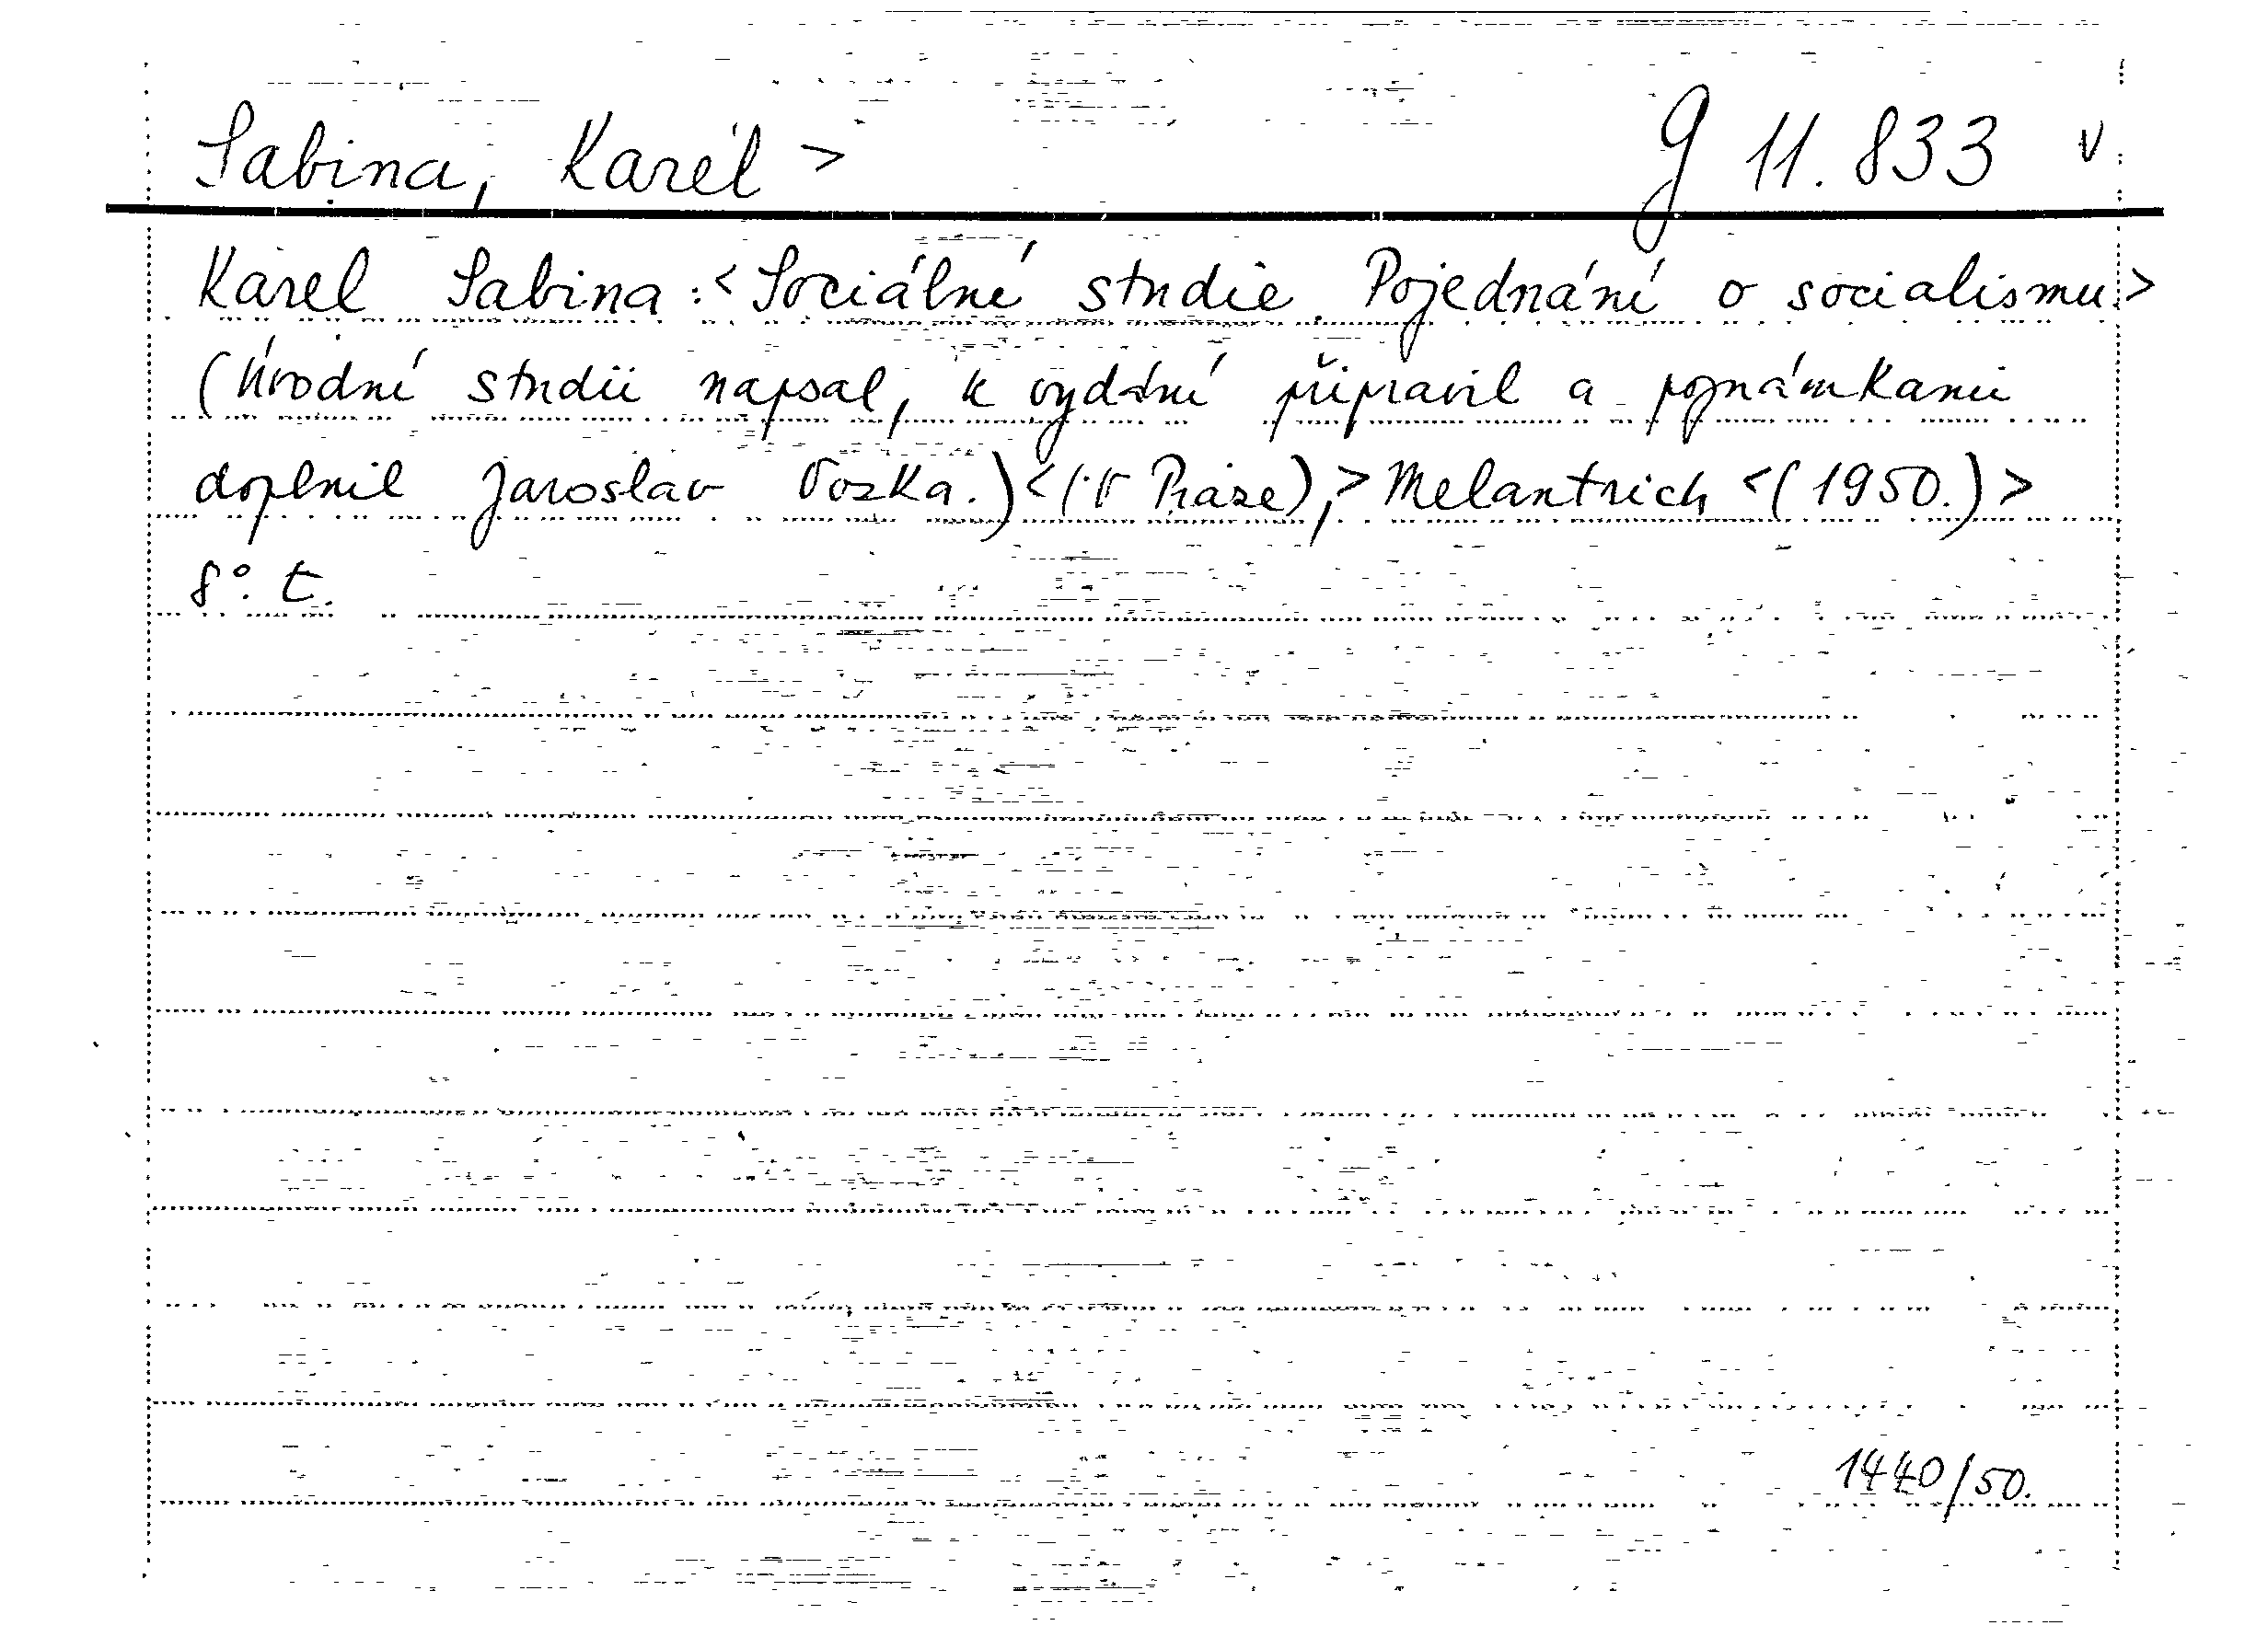 Sabina, Karel > g 11.833 v
Karel Sabina: <Sociálné studie. Pojednání o socialismu.>
(Úvodní studii napsal, k vydání připravil a poznámkami
doplnil Jaroslav Vozka.) <(V Praze), > Melantrich <(1950.)>
8°. t.
1440/50.